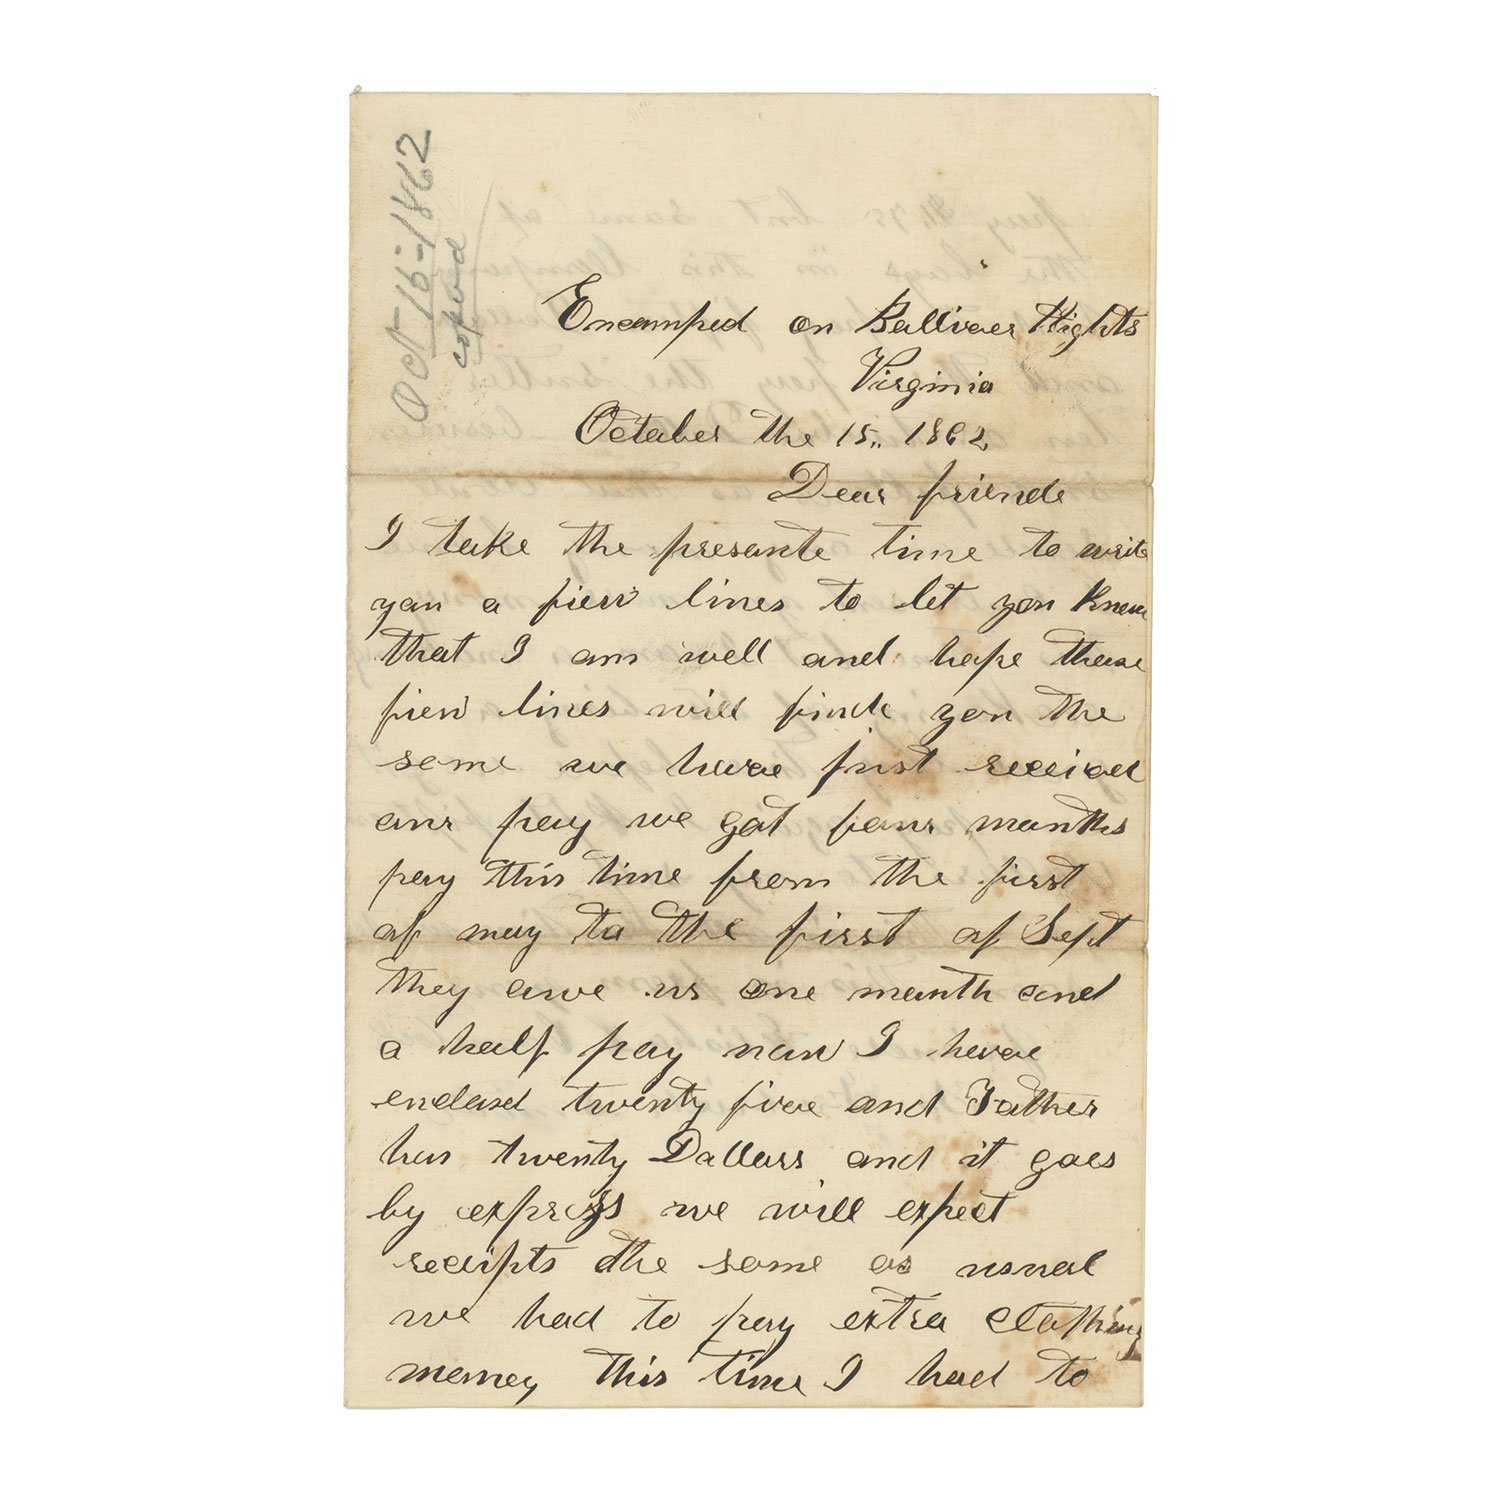 Oct 16-1862
copied
Encamped on Ballivaer Hights
Virginia
October the 15,, 1862
Dear friende
I take the presante time to write
you a fiew lines to let you know
that I am well and hope these
fiew lines will finde you the
same we have just recived
our pay we got four months
pay this time from the first
of may to the first of Sept
they owe us one month and
a half pay now I have
enclosed twenty five and Father
has twenty Dollars and it goes
by express we will expect
receipts the same as usual
we had to pay extra Clothing
money this time I had to